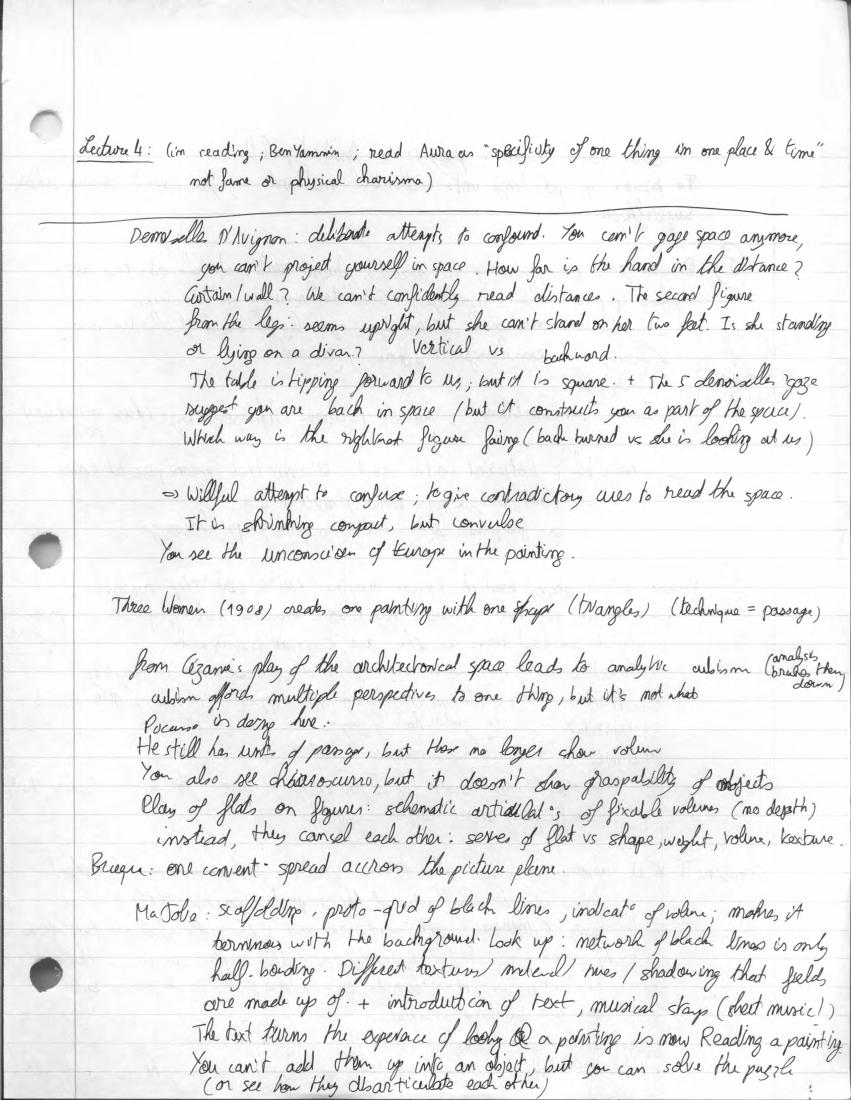 Lecture 4: (in reading; BenYammin; read Aura as "specificity of one thing in one place & time"
not fame or physical charisma)
Demoiselles D'Avignon: deliberate attempts to confound. You can't gage space anymore,
you can't project yourself in space. How far is the hand in the distance?
Curtain/wall? We can't confidently read distances. The second figure
from the leg: seems upright, but she can't stand on her two feet. Is she standing
or lying on a divan? Vertical vs backward.
The table is tipping forward to us; but it is square. + The 5 demoiselles gaze
suggest you are back in space (but it constructs you as part of the space).
Which way is the rightmost figure facing (back turned vs she is looking at us)
=> Willful attempt to confuse; to give contradictory cues to read the space.
It is shrinking compact, but convulse
You see the unconscious of Europe in the painting.
Three Women (1908) creates one painting with one shape (triangles) (technique = passage)
from Cézanne's play of the architectonical space leads to analytic cubism (analysis breaks them down)
cubism affords multiple perspectives to one thing, but it's not what
Picasso is doing here.
He still has units of passage, but these no longer show volume
You also see chiaroscurro, but it doesn't show graspability of objects
Play of flats on figures: schematic articulat°s of fixable volumes (no depth)
instead, they cancel each other: series of flat vs shape, weight, volume, texture.
Braque: one convent° spread accross the picture plane.
Ma Jolie: scaffolding, proto-grid of black lines, indicat° of volume; makes it
terminous with the background. Look up: network of black lines is only
half-bonding. Different textures/ material/ hues/ shadowing that fields
are made up of. + introduction of text, musical stays (sheet music!)
The text turns the experience of looking @ a painting is now Reading a painting
You can't add them up into an object, but you can solve the puzzle
(or see how they disarticulate each other)